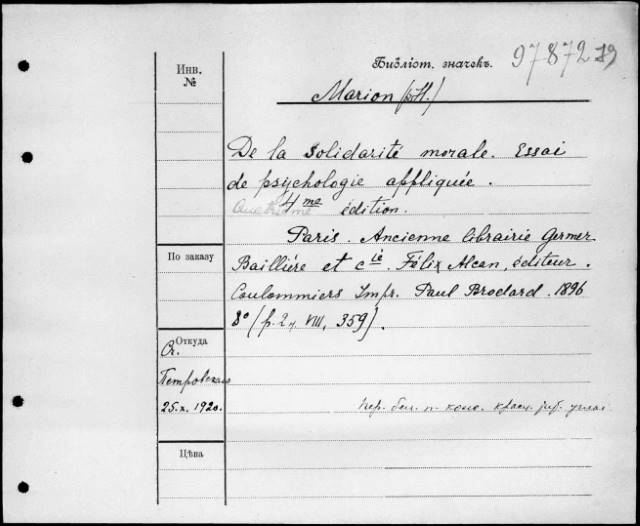 Инв.
№
Библіот. значекъ. 97872
Marion (H.)
De la solidarité morale. Essai
de psychologie appliquée.
4me édition.
Paris. Ancienne librairie Germer
Baillière et cie. Félix Alcan, éditeur.
По заказу
Coulommiers Impr. Paul Brodard. 1896
8° (p. 2 VIII, 359).
Откуда
25.X.1920.
Цѣна